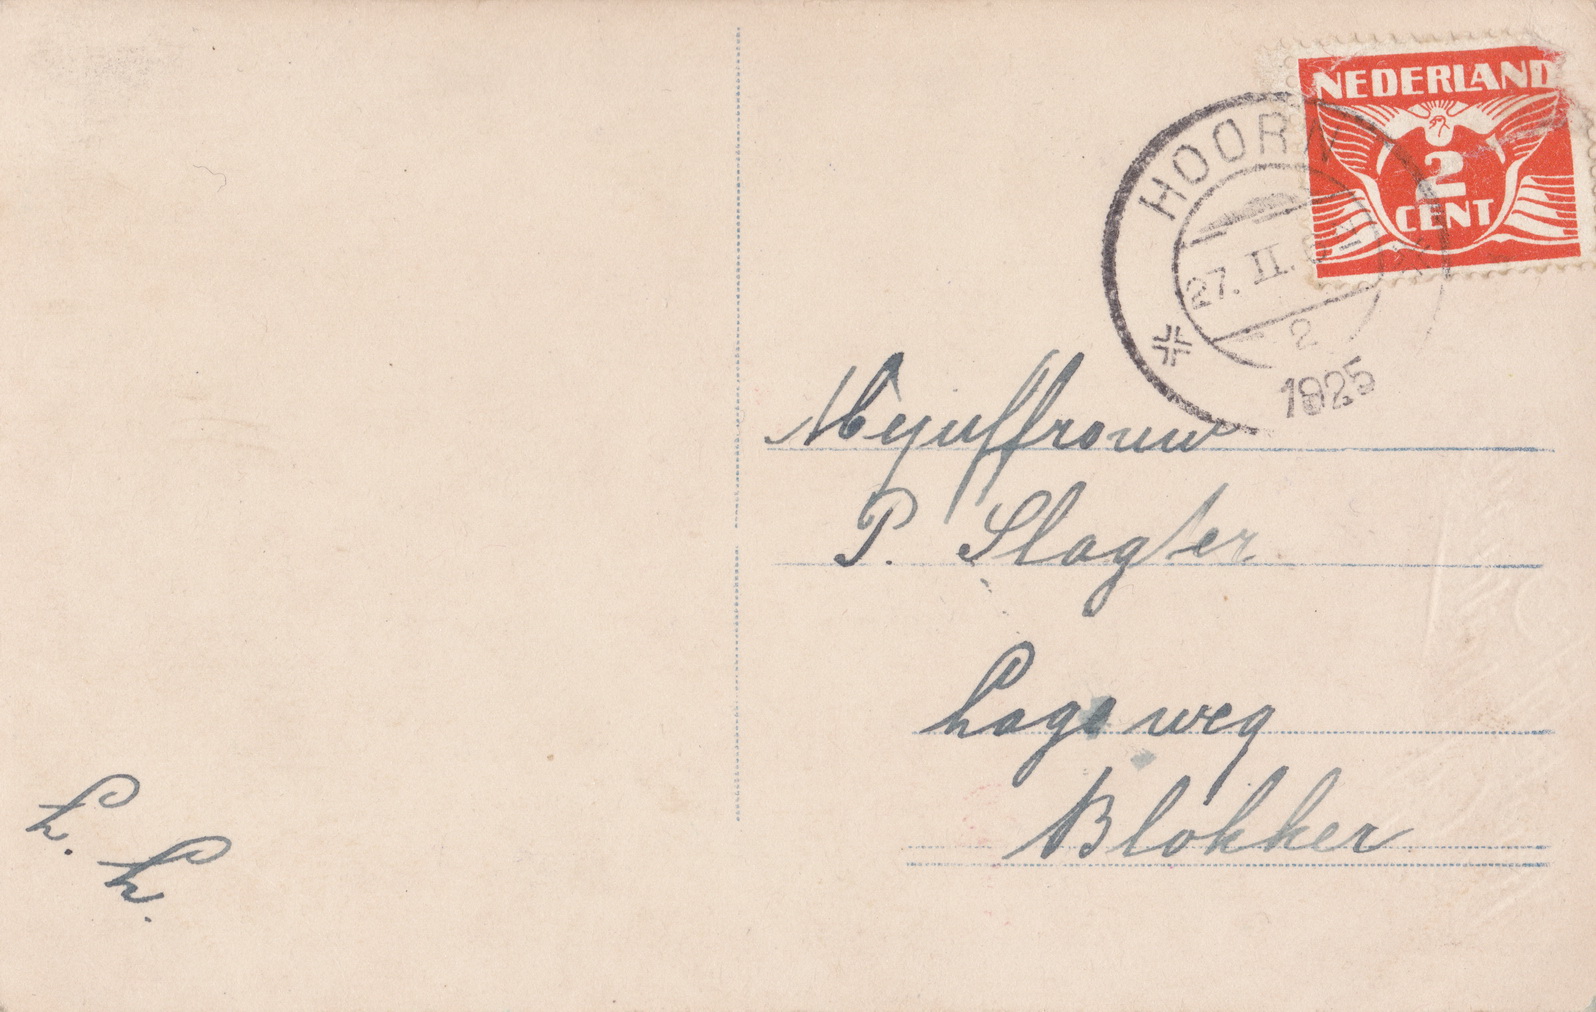 NEDERLAND
2
CENT
HOORN
27. II.
2
1925
Mejuffrouw
P. Slagter
Lageweg
Blokker
L.
L.